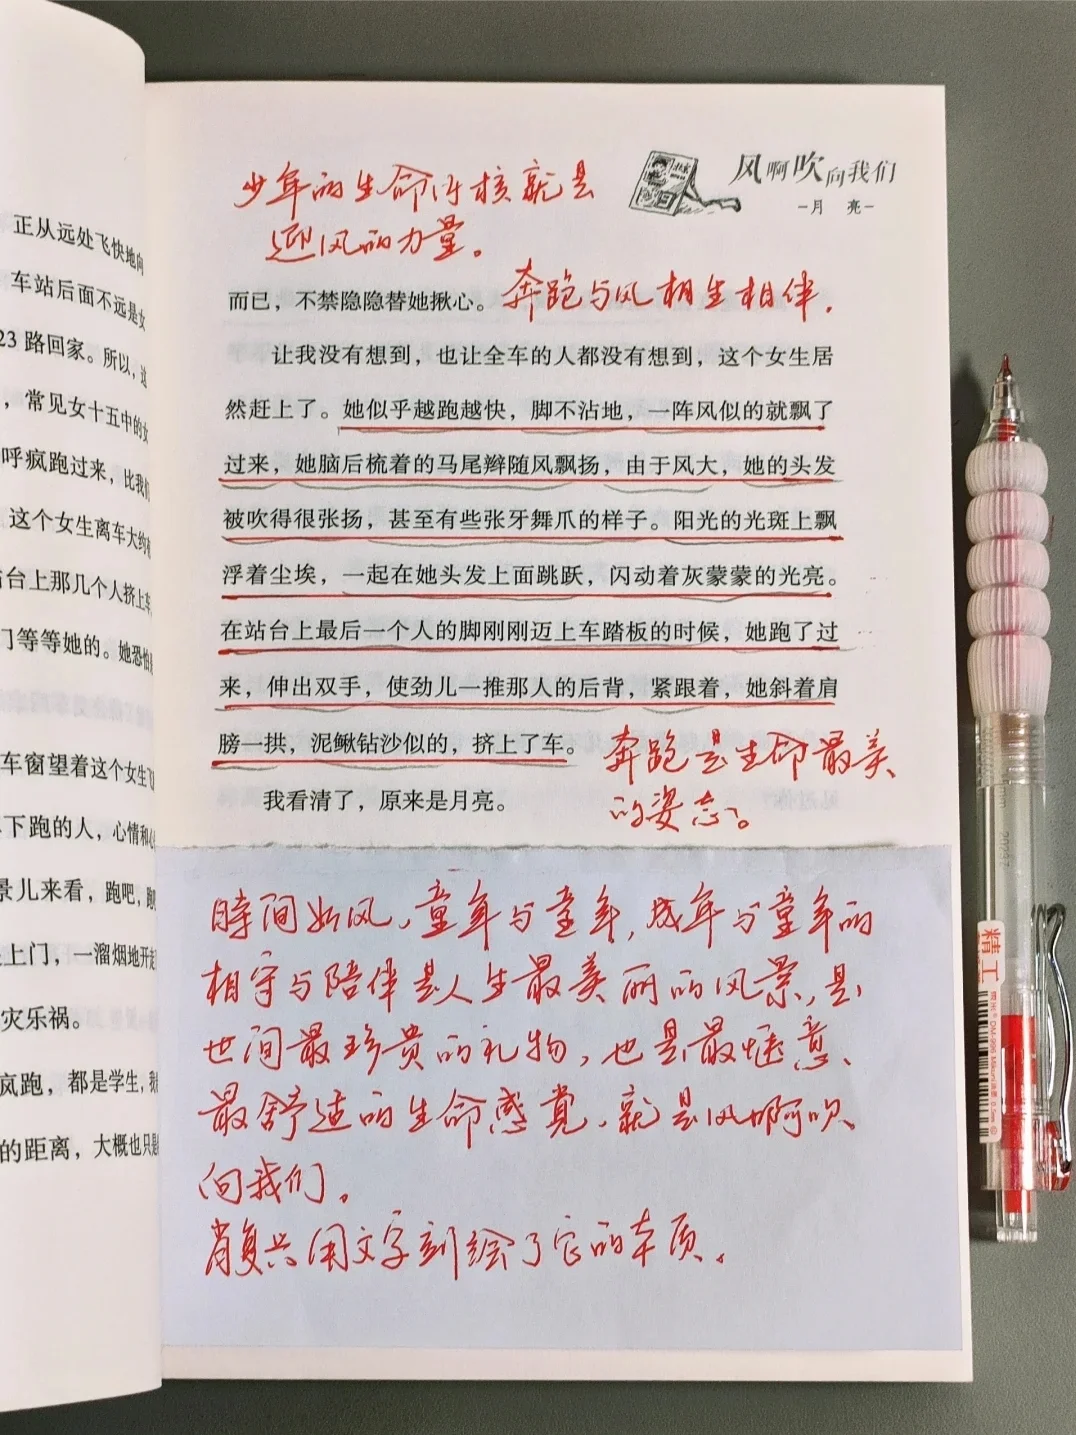 正从远处飞快地向
车站后面不远是女
23路回家。所以，这
，常见女十五中的女
呼疯跑过来，比我们
这个女生离车大约
台上那几个人挤上车，
门等等她的。她恐怕
车窗望着这个女生飞
下跑的人，心情和心
景儿来看，跑吧，跑
上门，一溜烟地开走
灾乐祸。
疯跑，都是学生，我
的距离，大概也只是
风啊吹向我们
-月 亮-
少年的生命内核就是
迎风的力量。
而已，不禁隐隐替她揪心。
奔跑与风相生相伴，
让我没有想到，也让全车的人都没有想到，这个女生居
然赶上了。她似乎越跑越快，脚不沾地，一阵风似的就飘了
过来，她脑后梳着的马尾辫随风飘扬，由于风大，她的头发
被吹得很张扬，甚至有些张牙舞爪的样子。阳光的光斑上飘
浮着尘埃，一起在她头发上面跳跃，闪动着灰蒙蒙的光亮。
在站台上最后一个人的脚刚刚迈上车踏板的时候，她跑了过
来，伸出双手，使劲儿一推那人的后背，紧跟着，她斜着肩
膀一拱，泥鳅钻沙似的，挤上了车。
奔跑是生命最美
的姿态。
我看清了，原来是月亮。
時间如风，童年与童年，成年与童年的
相守与陪伴是人生最美丽的风景，是
世间最珍贵的礼物，也是最惬意、
最舒适的生命感觉，就是风啊吹
向我们。
肖复兴用文字刻绘了它的本质。
精工